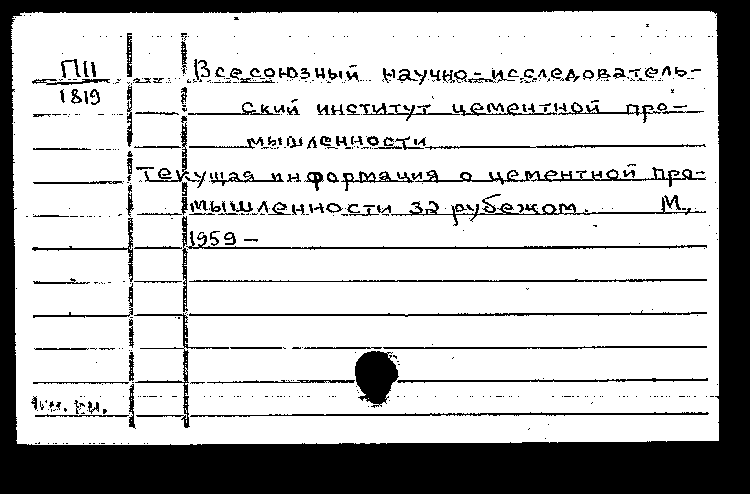 ПII
1819
Всесоюзный научно-исследователь-
ский институт цементной про-
мышленности
Текущая информация о цементной про-
мышленности за рубежом. М.,
1959 —